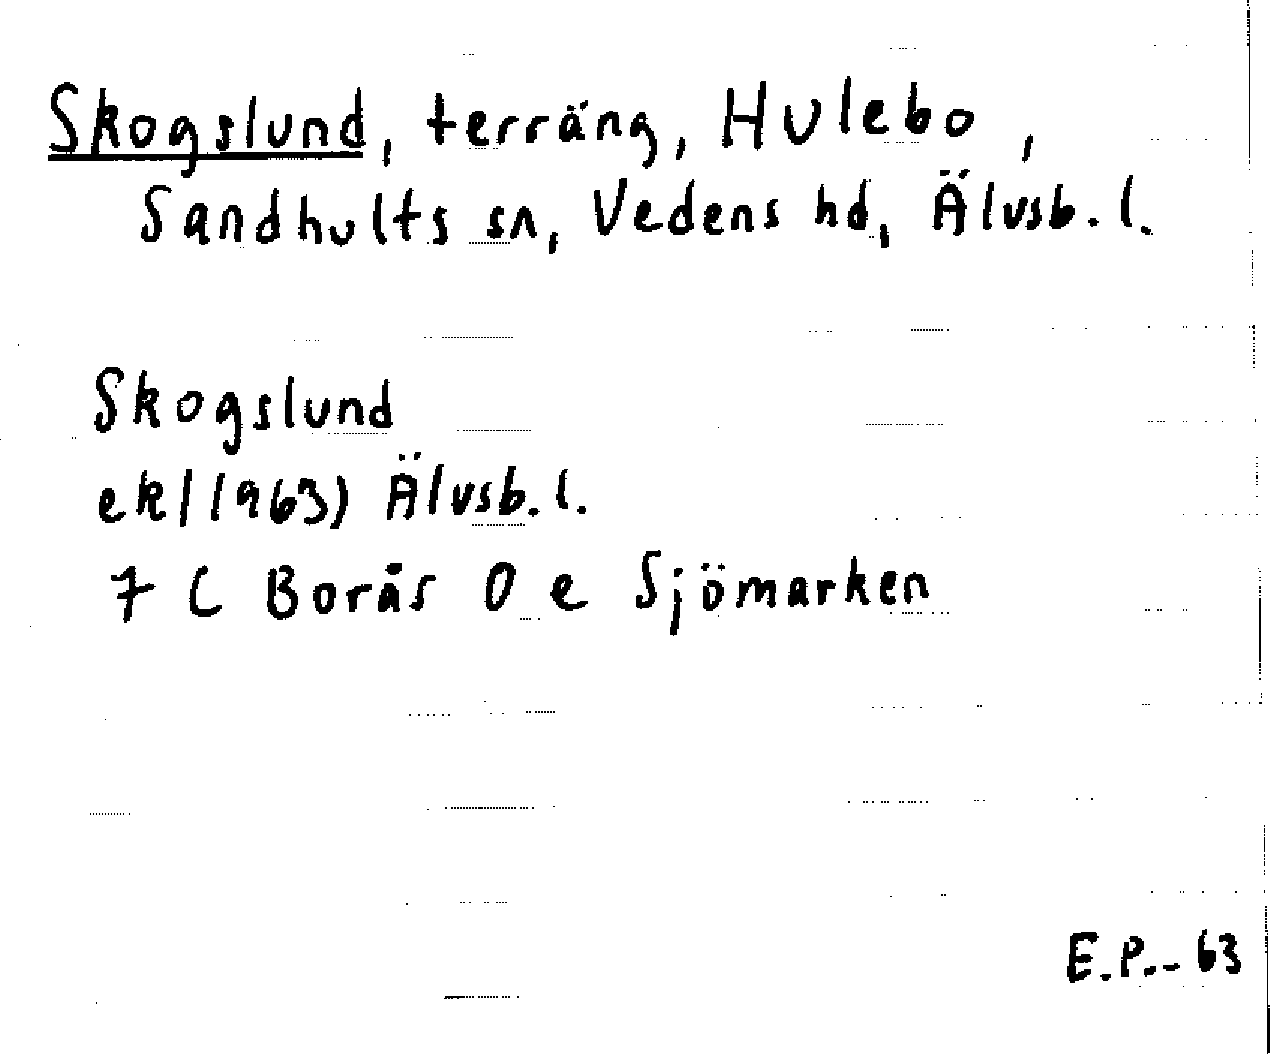 Skogslund, terräng, Hulebo,
Sandhults sn, Vedens hd, Älvsb. l.
Skogslund
ek/1963) Älvsb. l.
7 C Borås 0 e Sjömarken
E.P.-63